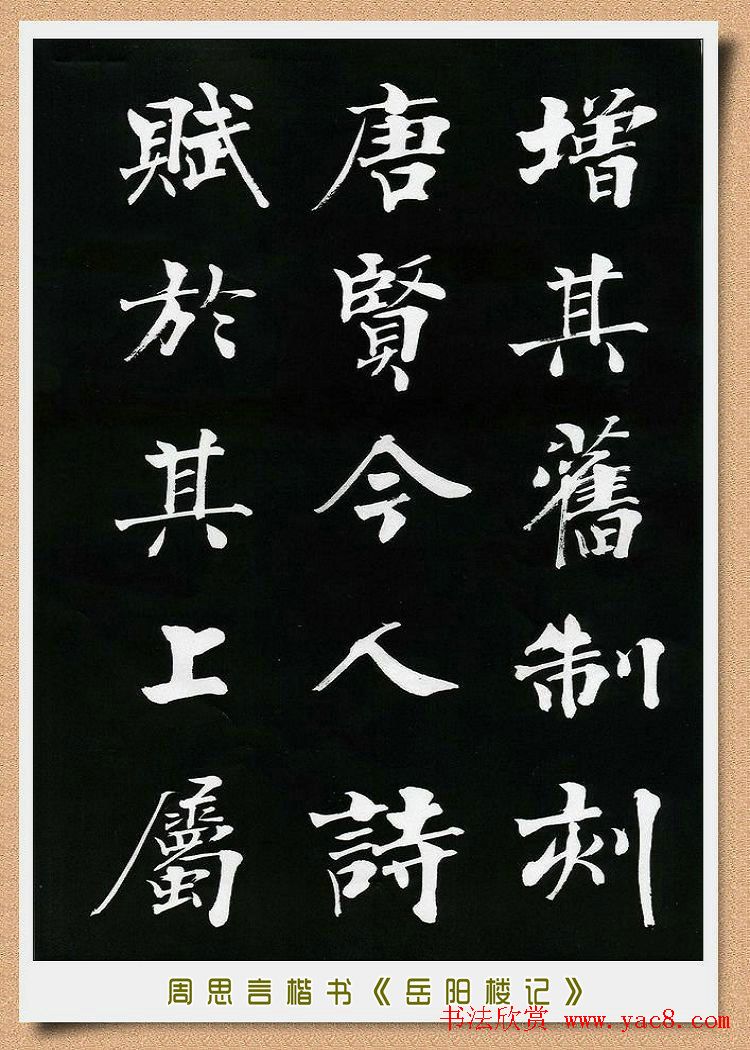 增其舊制刻
唐賢今人詩
賦於其上屬
周思言楷书《岳阳楼记》
书法欣赏 www.yac8.com